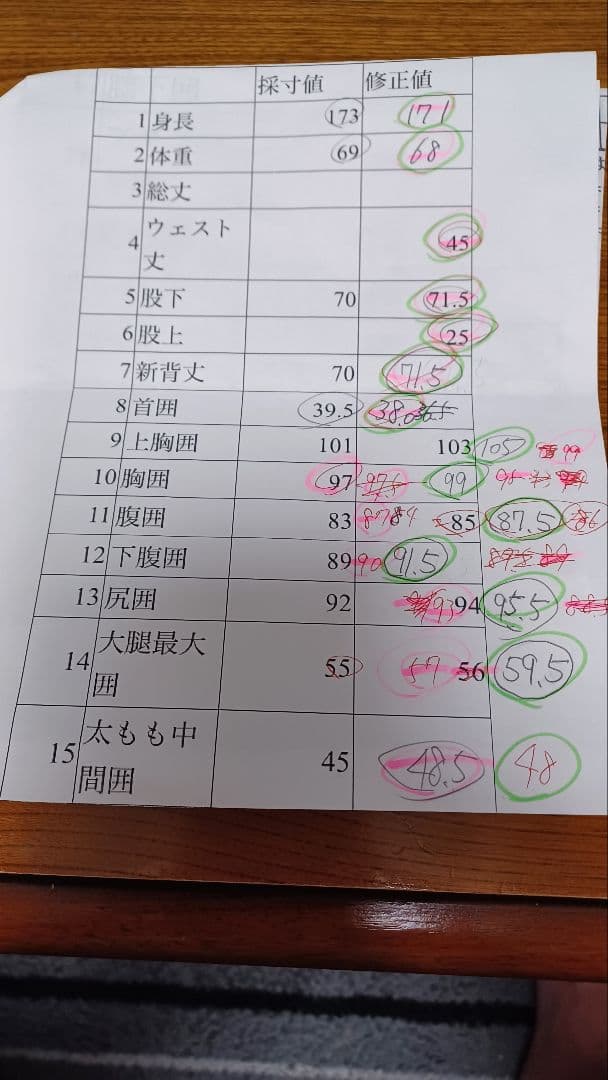 採寸値 修正値
1 身長 173 171
2 体重 69 68
3 総丈
4 ウェスト丈 45
5 股下 70 71.5
6 股上 25
7 新背丈 70 71.5
8 首囲 39.5 38.0
9 上胸囲 101 103 105 99
10 胸囲 97 97.5 99
11 腹囲 83 87 84 85 87.5 86
12 下腹囲 89 90 91.5 89.5 89
13 尻囲 92 93 94 95.5
14 大腿最大囲 55 57 56 59.5
15 太もも中間囲 45 48.5 48